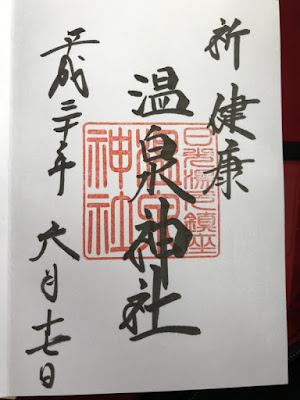 祈健康
温泉神社
平成三十年 六月十七日
日光湯元鎮座
温泉
神社